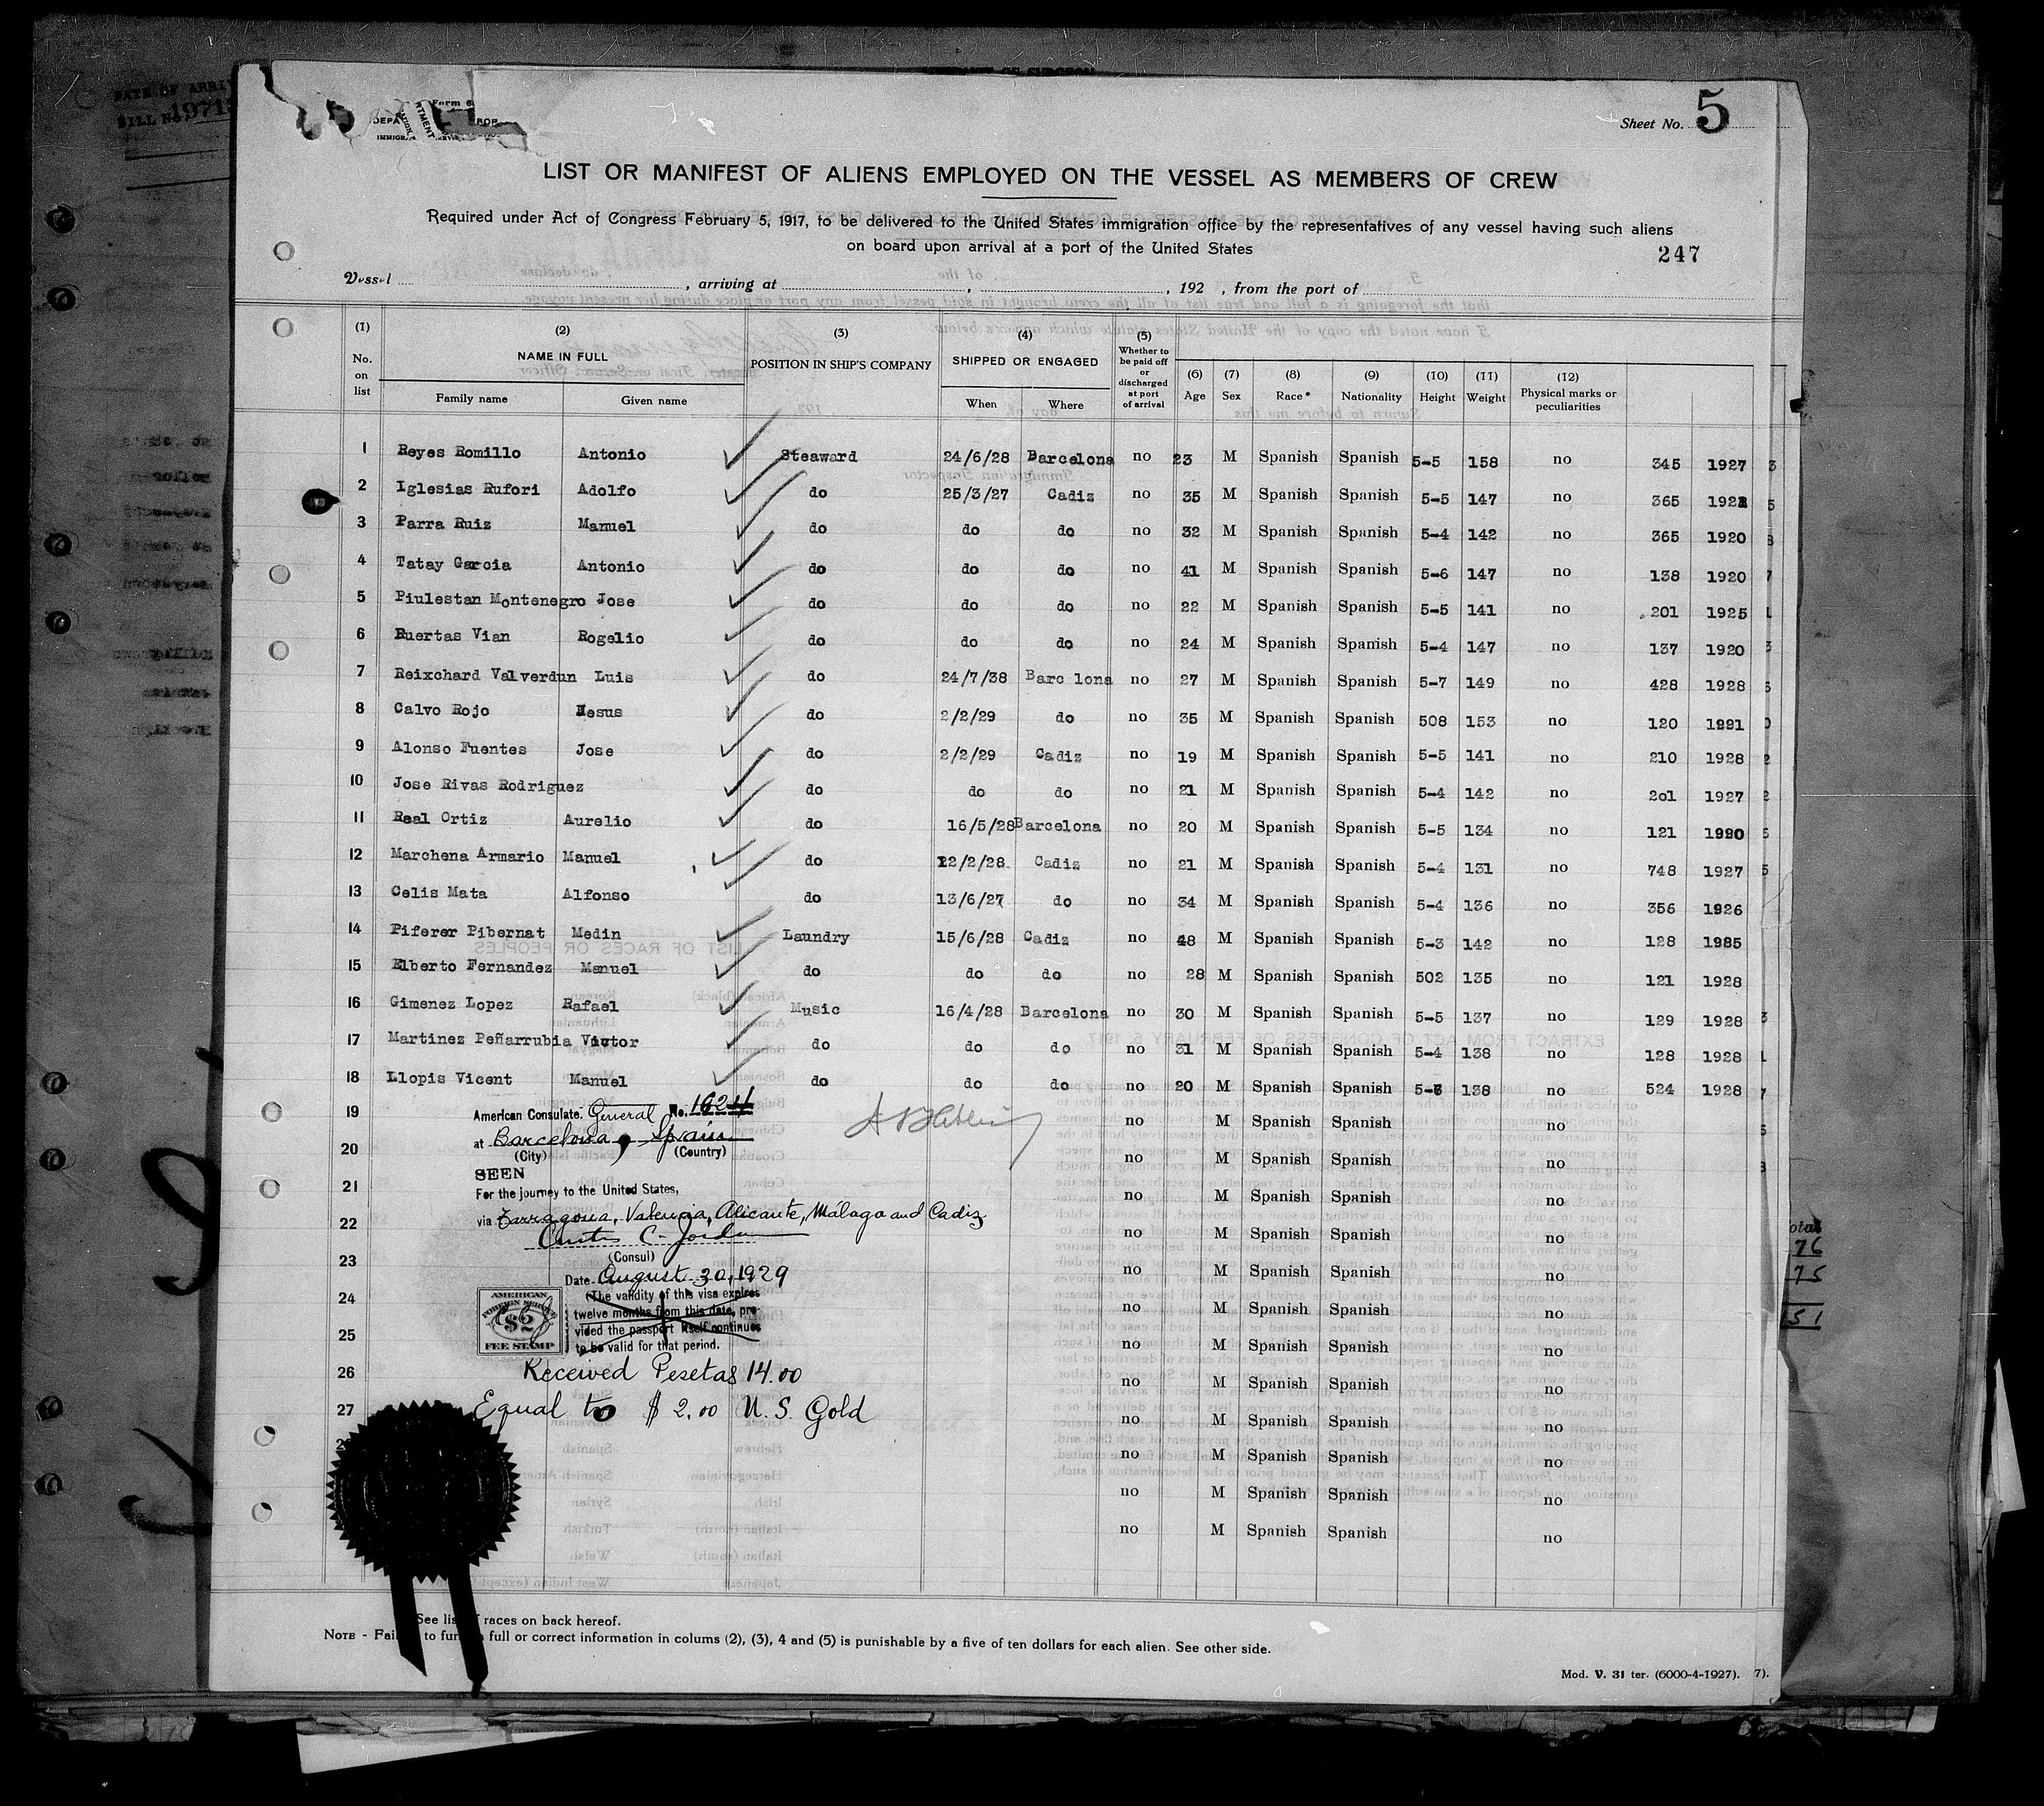 Form 6
Sheet No. 5
LIST OR MANIFEST OF ALIENS EMPLOYED ON THE VESSEL AS MEMBERS OF CREW
Required under Act of Congress February 5, 1917, to be delivered to the United States immigration office by the representatives of any vessel having such aliens
on board upon arrival at a port of the United States
247
Vessel , arriving at , , 192 , from the port of
(1) No. on list (2) NAME IN FULL Family name Given name (3) POSITION IN SHIP'S COMPANY (4) SHIPPED OR ENGAGED When Where (5) Whether to be paid off or discharged at port of arrival (6) Age (7) Sex (8) Race* (9) Nationality (10) Height (11) Weight (12) Physical marks or peculiarities
1 Reyes Romillo Antonio Steaward 24/6/28 Barcelona no 23 M Spanish Spanish 5-5 158 no 345 1927
2 Iglesias Rufori Adolfo do 25/3/27 Cadiz no 35 M Spanish Spanish 5-5 147 no 365 192
3 Parra Ruiz Manuel do do do no 32 M Spanish Spanish 5-4 142 no 365 1920
4 Tatay Garcia Antonio do do do no 41 M Spanish Spanish 5-6 147 no 138 1920
5 Piulestan Montenegro Jose do do do no 22 M Spanish Spanish 5-5 141 no 201 1925
6 Ruertas Vian Rogelio do do do no 24 M Spanish Spanish 5-4 147 no 137 1920
7 Reixchard Valverdun Luis do 24/7/38 Barc lona no 27 M Spanish Spanish 5-7 149 no 428 1928
8 Calvo Rojo Jesus do 2/2/29 do no 35 M Spanish Spanish 508 153 no 120 1921
9 Alonso Fuentes Jose do 2/2/29 Cadiz no 19 M Spanish Spanish 5-5 141 no 210 1928
10 Jose Rivas Rodriguez do do do no 21 M Spanish Spanish 5-4 142 no 201 1927
11 Real Ortiz Aurelio do 16/5/28 Barcelona no 20 M Spanish Spanish 5-5 134 no 121 1920
12 Marchena Armario Manuel do 12/2/28 Cadiz no 21 M Spanish Spanish 5-4 131 no 748 1927
13 Celis Mata Alfonso do 13/6/27 do no 34 M Spanish Spanish 5-4 136 no 356 1926
14 Piferer Pibernat Medin Laundry 15/6/28 Cadiz no 48 M Spanish Spanish 5-3 142 no 128 1985
15 Elberto Fernandez Manuel do do do no 28 M Spanish Spanish 502 135 no 121 1928
16 Gimenez Lopez Rafael Music 16/4/28 Barcelona no 30 M Spanish Spanish 5-5 137 no 129 1928
17 Martinez Peñarrubia Victor do do do no 31 M Spanish Spanish 5-4 138 no 128 1928
18 Llopis Vicent Manuel do do do no 20 M Spanish Spanish 138 no 524 1928
19 American Consulate. General No. 1624 no M Spanish Spanish no
at Barcelona, Spain
20 (City) (Country) no M Spanish Spanish no
SEEN
21 For the journey to the United States, no M Spanish Spanish no
via Tarragona, Valencia, Alicante, Málaga and Cadiz.
22 Curtis C. Jordan no M Spanish Spanish no
23 (Consul) no M Spanish Spanish no
Date August 30, 1929
24 (The validity of this visa expires no M Spanish Spanish no
twelve months from this date, pro-
25 vided the passport itself continues no M Spanish Spanish no
to be valid for that period.
AMERICAN FOREIGN SERVICE $2 FEE STAMP
26 Received Pesetas 14.00 no M Spanish Spanish no
27 Equal to $ 2.00 U.S. Gold no M Spanish Spanish no
no M Spanish Spanish no
no M Spanish Spanish no
no M Spanish Spanish no
See list of races on back hereof.
NOTE - Fai to furn full or correct information in colums (2), (3), 4 and (5) is punishable by a five of ten dollars for each alien. See other side.
Mod. V. 31 ter. (6000-4-1927). 7).